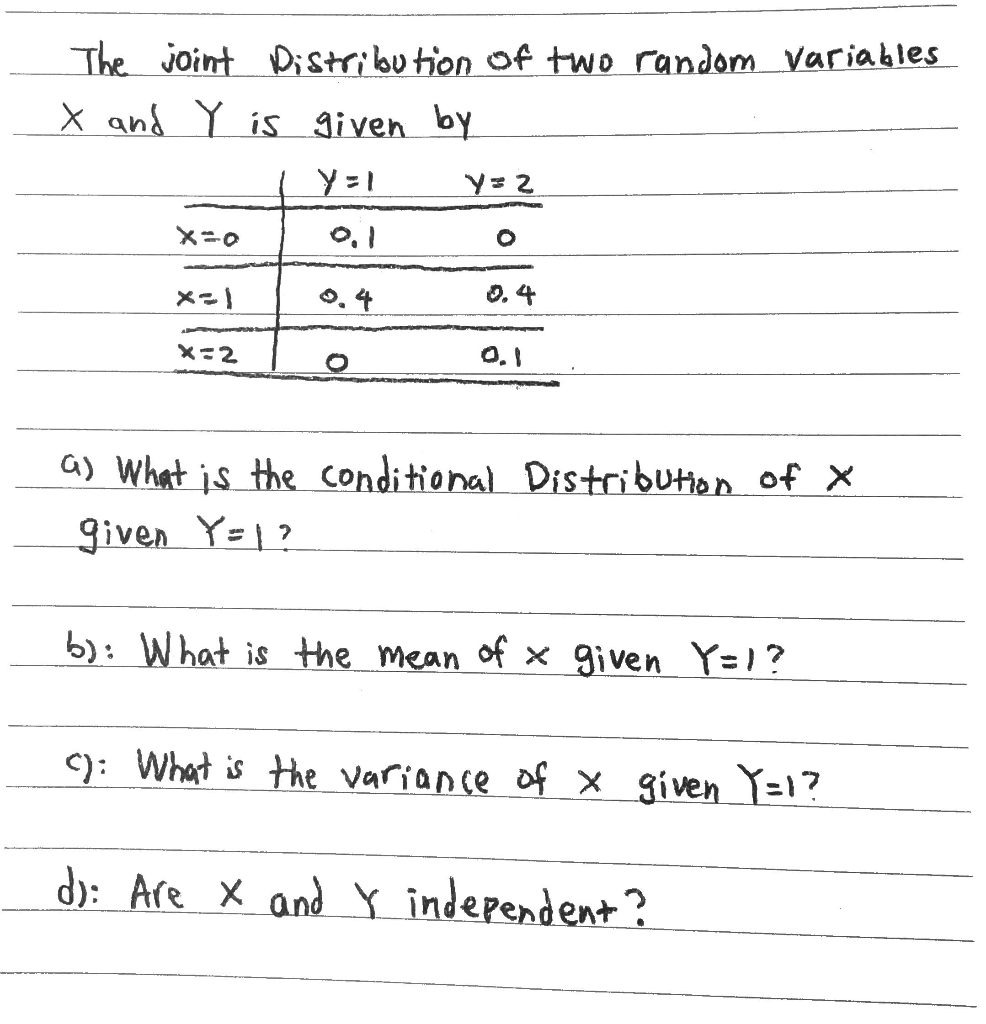 The joint Distribution of two random variables
X and Y is given by
Y=1 Y=2
X=0 0.1 0
X=1 0.4 0.4
X=2 0 0.1
a) What is the conditional Distribution of X
given Y=1?
b): What is the mean of x given Y=1?
c): What is the variance of x given Y=1?
d): Are X and Y independent?